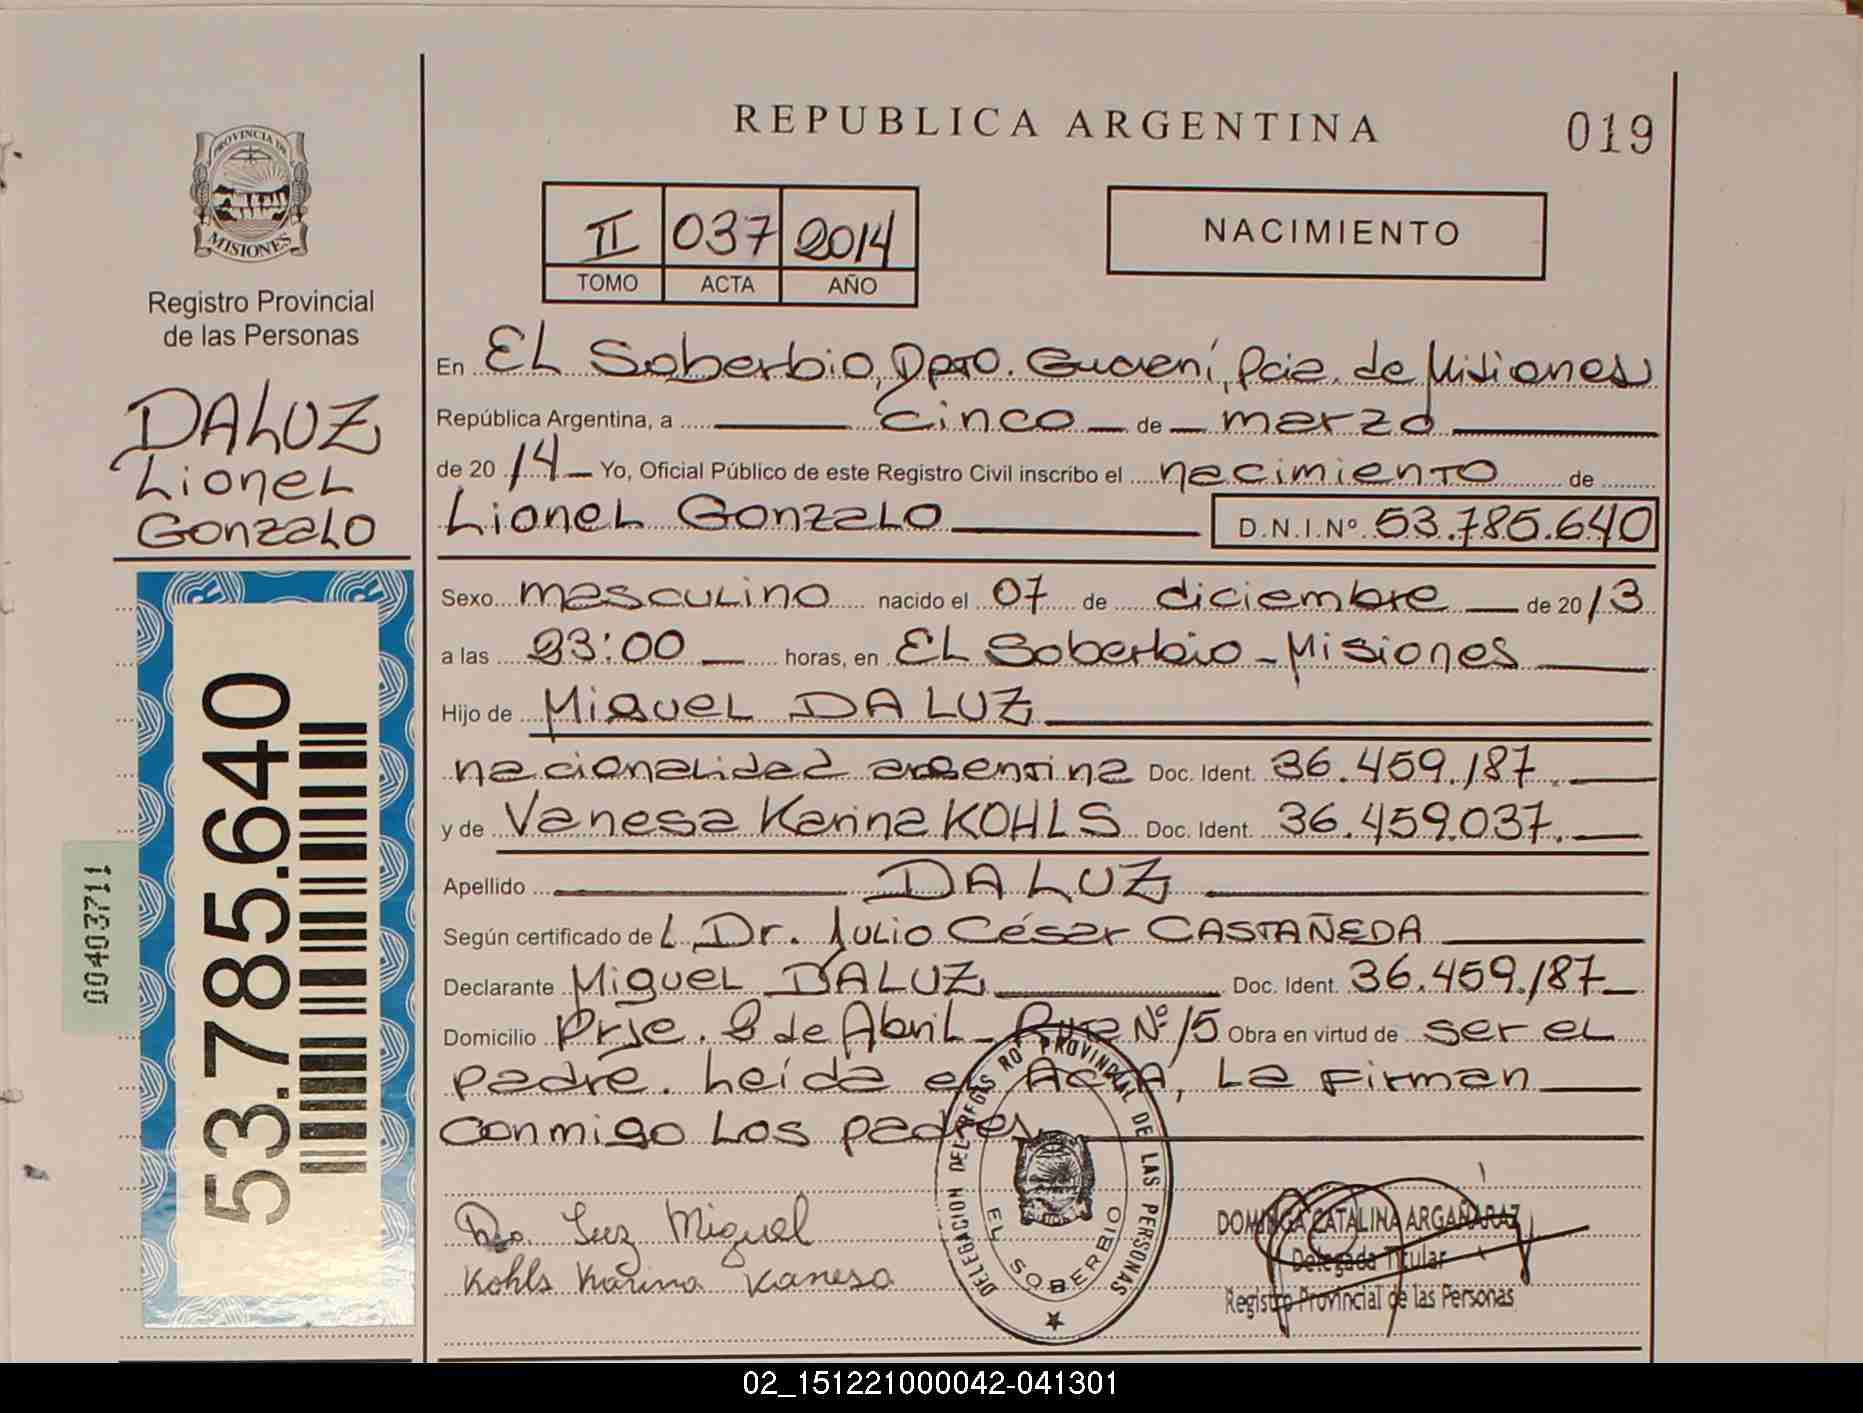 REPUBLICA ARGENTINA
019
PROVINCIA DE
MISIONES
Registro Provincial
de las Personas
II 037 2014
TOMO ACTA AÑO
NACIMIENTO
DA LUZ
Lionel
Gonzalo
53.785.640
00403711
En EL Soberbio, Dpto. Guaraní, Pcia. de Misiones
República Argentina, a cinco de marzo
de 20 14 Yo, Oficial Público de este Registro Civil inscribo el nacimiento de
Lionel Gonzalo D.N.I.Nº 53.785.640
Sexo masculino nacido el 07 de diciembre de 2013
a las 23:00 horas, en EL Soberbio - Misiones
Hijo de Miguel DA LUZ
nacionalidad argentina Doc. Ident. 36.459.187
y de Vanesa Karina KOHLS Doc. Ident. 36.459.037.
Apellido DA LUZ
Según certificado del Dr. Julio César CASTAÑEDA
Declarante Miguel DA LUZ Doc. Ident. 36.459.187
Domicilio Prje. 8 de Abril - Ruta Nº 15 Obra en virtud de ser el
padre. Leída el Acta, la firman
conmigo los padres
Luz Miguel
Kohls Karina Vanesa
DELEGACION DEL REGISTRO PROVINCIAL DE LAS PERSONAS
EL SOBERBIO
DOMINGA CATALINA ARGAÑARAZ
Delegada Titular
Registro Provincial de las Personas
02_151221000042-041301